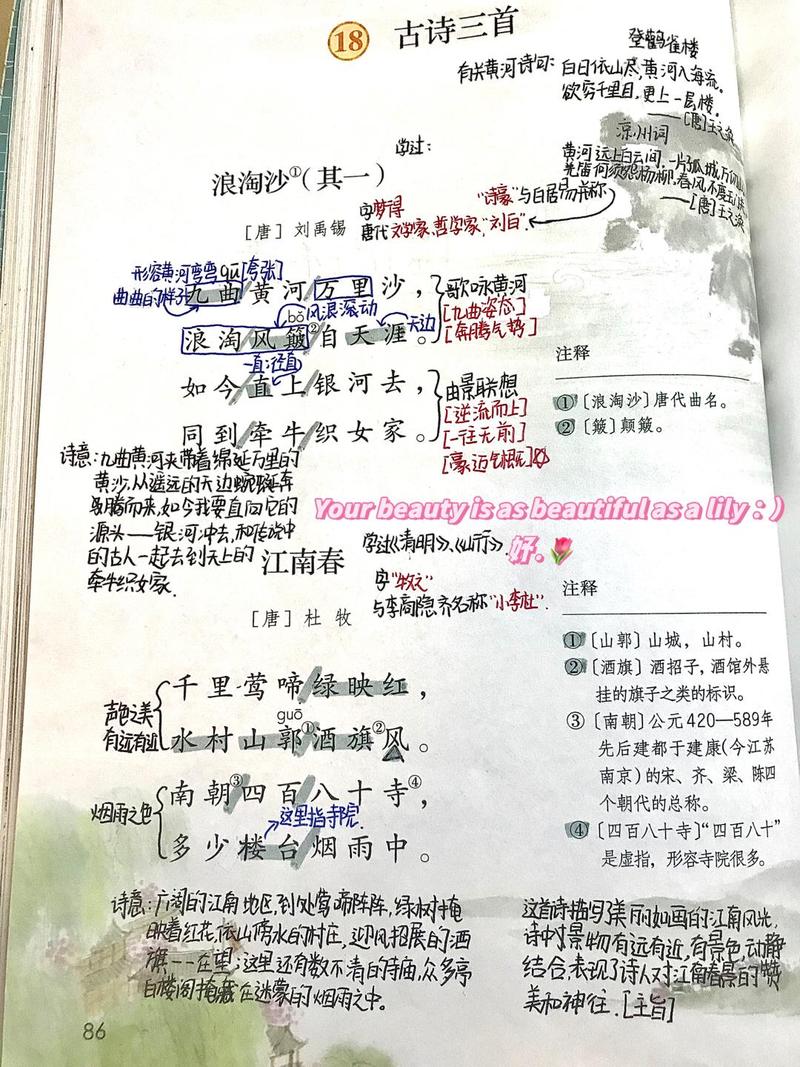 18 古诗三首
登鹳雀楼
有关黄河诗句：白日依山尽，黄河入海流。
欲穷千里目，更上一层楼。
——[唐]王之涣
凉州词
黄河远上白云间，一片孤城万仞山
羌笛何须怨杨柳，春风不度玉门关
——[唐]王之涣
学过：
浪淘沙①（其一）
［唐］刘禹锡
字梦得
“诗豪”与白居易并称
唐代文学家，哲学家，“刘白”
形容黄河弯弯
曲曲的样子
qū [夸张]
九曲黄河万里沙，
bǒ
风浪滚动
浪淘风簸②自天涯。
天边
一直，径直
如今直上银河去，
同到牵牛织女家。
歌咏黄河
[九曲姿态]
[奔腾气势]
由景联想
[逆流而上]
[一往无前]
[豪迈气概]
注释
①〔浪淘沙〕唐代曲名。
②〔簸〕颠簸。
诗意：九曲黄河夹带着绵延万里的
黄沙，从遥远的天边蜿蜒
奔腾而来，如今我要直向它的
源头——银河冲去，和传说中
的古人一起去到天上的
牵牛织女家.
Your beauty is as beautiful as a lily：）
好.🌷
江南春
［唐］杜 牧
学过《清明》、《山行》
字“牧之”
与李商隐齐名称“小李杜”.
千里莺啼绿映红，
guō
水村山郭①酒旗②风。
南朝③四百八十寺④，
这里指寺院
多少楼台烟雨中。
声色之美
有远有近
烟雨之色
注释
①〔山郭〕山城，山村。
②〔酒旗〕酒招子，酒馆外悬
挂的旗子之类的标识。
③〔南朝〕公元420—589年
先后建都于建康（今江苏
南京）的宋、齐、梁、陈四
个朝代的总称。
④〔四百八十寺〕“四百八十”
是虚指，形容寺院很多。
诗意：广阔的江南地区，到处莺啼阵阵，绿树掩
映着红花，依山傍水的村庄，迎风招展的酒
旗一一在望；这里还有数不清的寺庙，众多亭
台楼阁掩藏在迷蒙的烟雨之中.
这首诗描写了美丽如画的江南风光，
诗中景物有远有近，有景色动静
结合，表现了诗人对江南春景的赞
美和神往.[主旨]
86